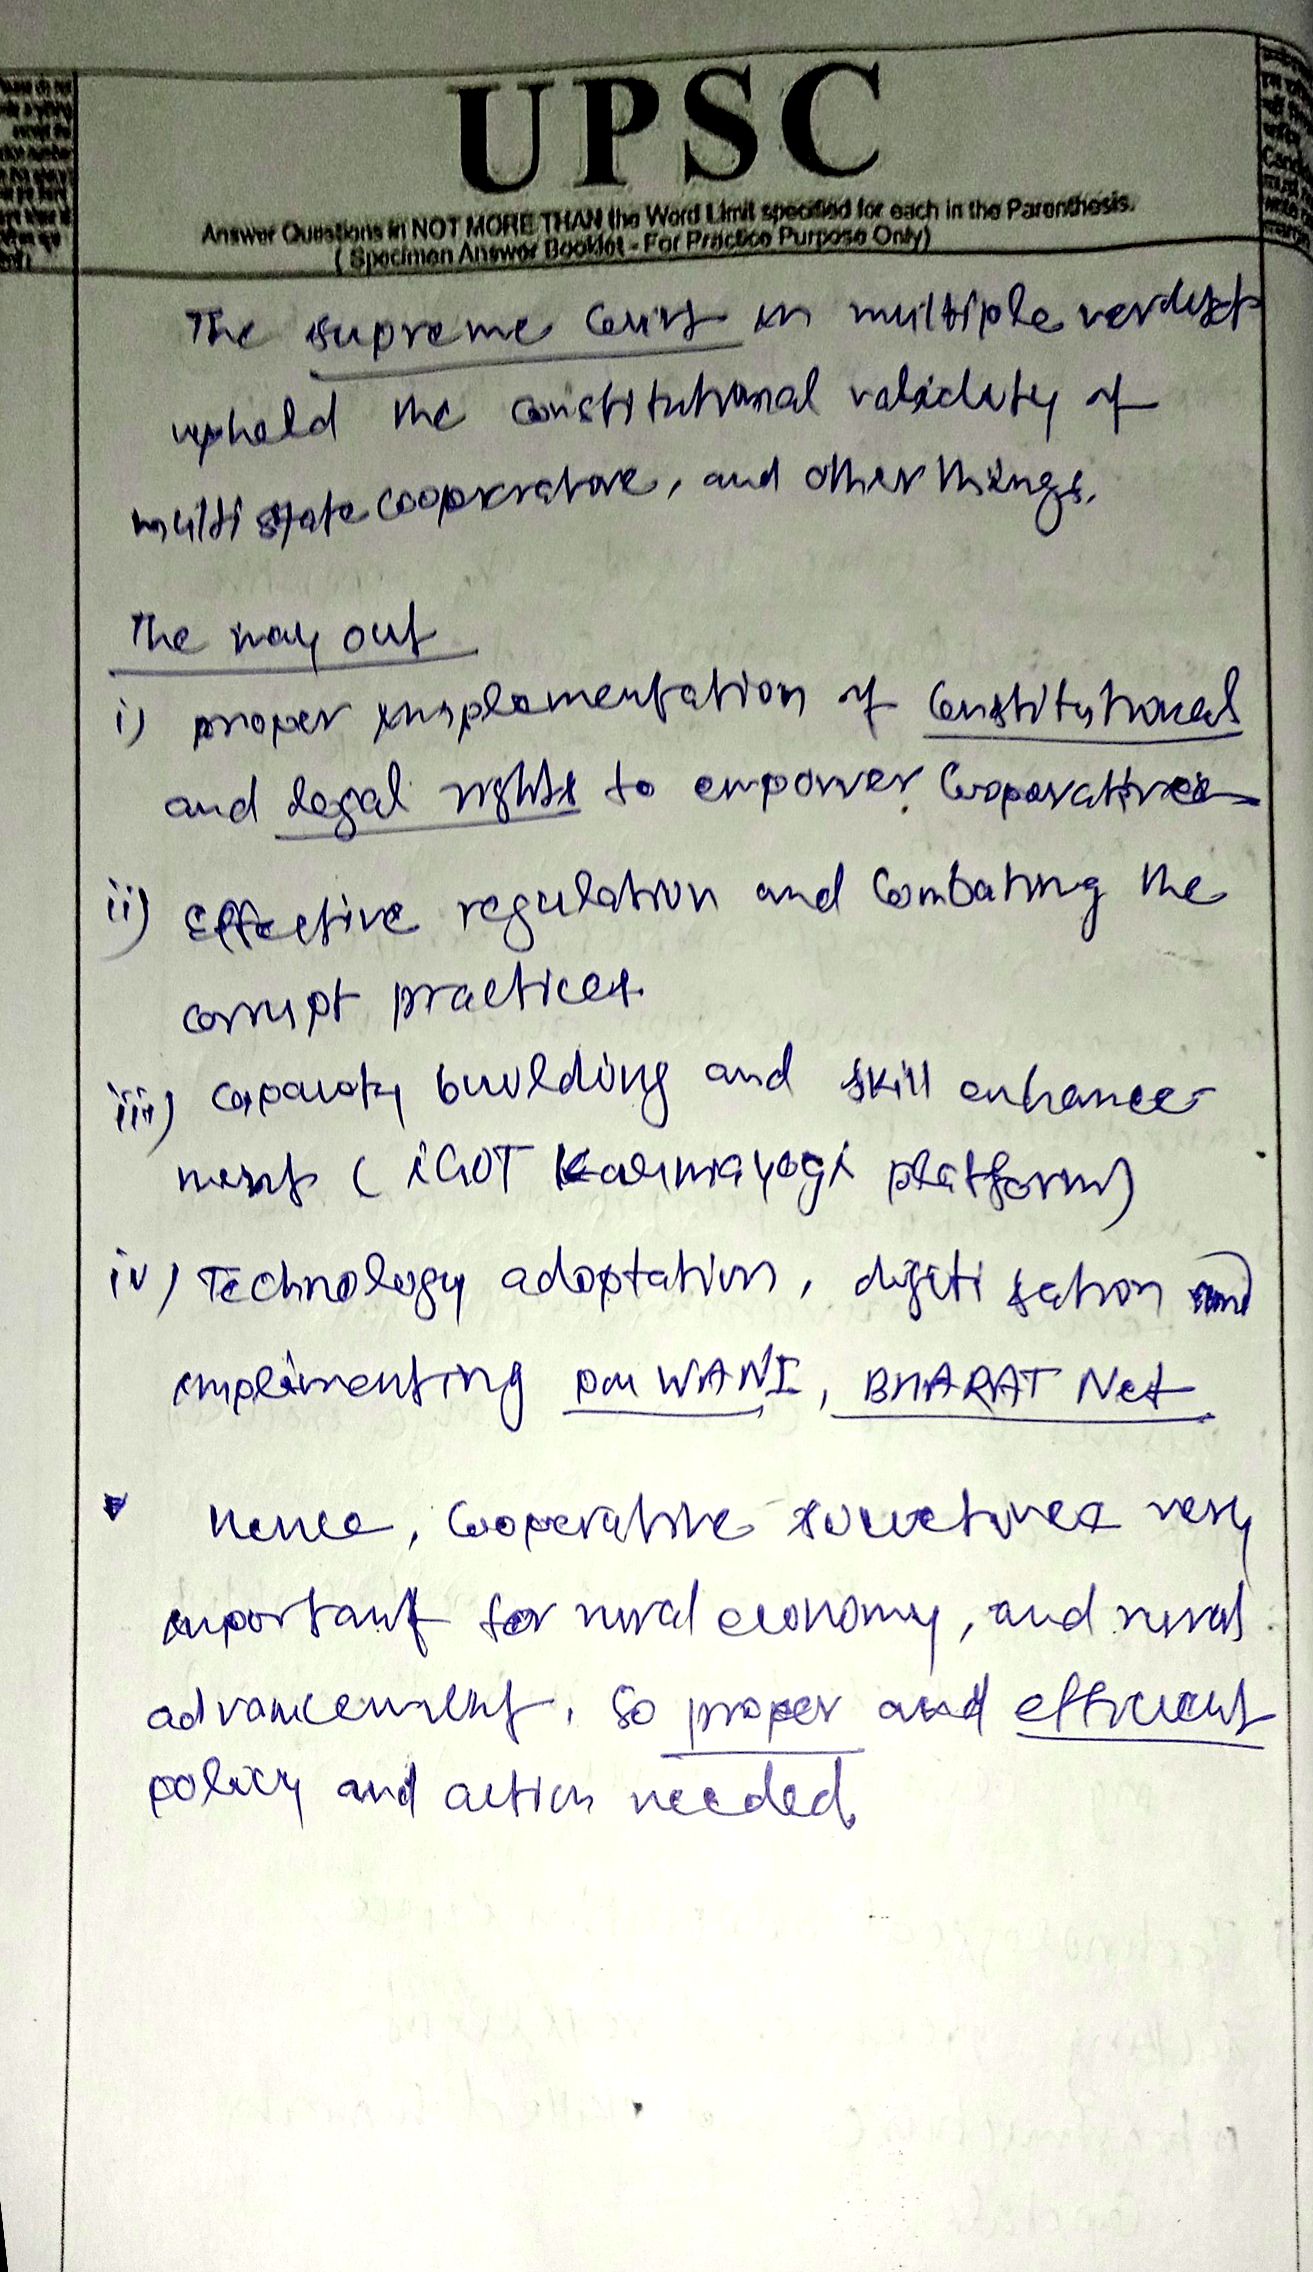 UPSC
Answer Questions in NOT MORE THAN the Word Limit specified for each in the Parenthesis.
( Specimen Answer Booklet - For Practice Purpose Only)
The supreme Court in multiple verdict
upheld the constitutional validity of
multi state cooperative, and other things.
The way out
i) proper implementation of Constitutional
and legal rights to empower Cooperatives
ii) Effective regulation and Combating the
corrupt practices.
iii) Capacity building and skill enhance-
ment ( iGOT Karmayogi platform)
iv) Technology adoptation, digiti sation and
implimenting PM WANI, BHARAT Net
Hence, Cooperative structures very
important for rural economy, and rural
advancement. So proper and efficient
policy and action needed.